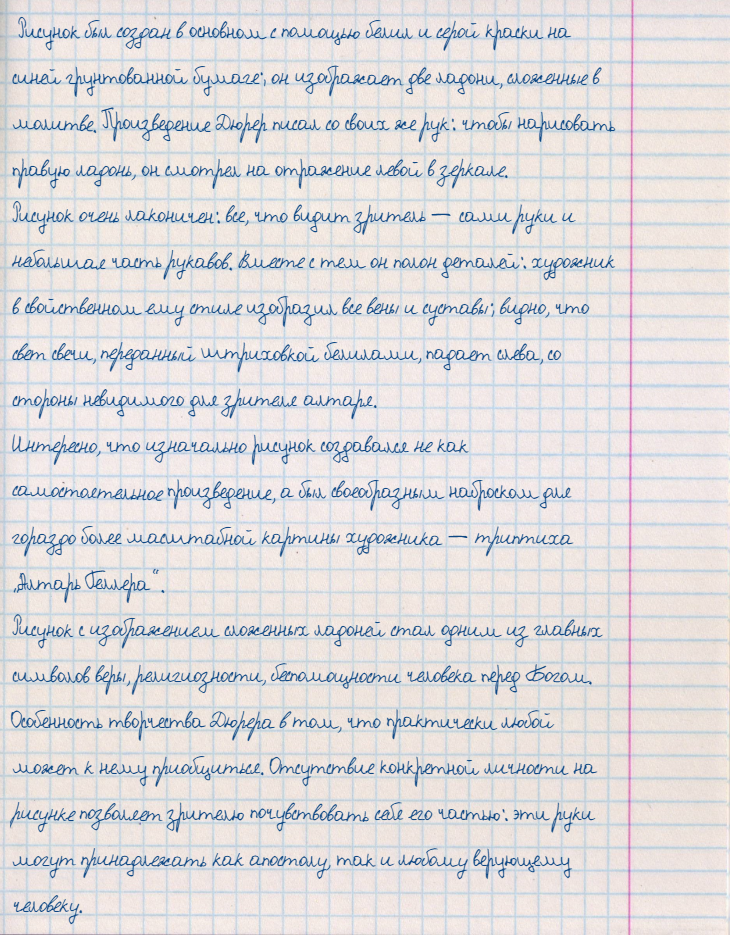 Рисунок был создан в основном с помощью белил и серой краски на
синей грунтованной бумаге; он изображает две ладони, сложенные в
молитве. Произведение Дюрер писал со своих же рук: чтобы нарисовать
правую ладонь, он смотрел на отражение левой в зеркале.
Рисунок очень лаконичен: все, что видит зритель — сами руки и
небольшая часть рукавов. Вместе с тем он полон деталей: художник
в свойственном ему стиле изобразил все вены и суставы; видно, что
свет свечи, переданный штриховкой белилами, падает слева, со
стороны невидимого для зрителя алтаря.
Интересно, что изначально рисунок создавался не как
самостоятельное произведение, а был своеобразным наброском для
гораздо более масштабной картины художника — триптиха
„Алтарь Геллера“.
Рисунок с изображением сложенных ладоней стал одним из главных
символов веры, религиозности, беспомощности человека перед Богом.
Особенность творчества Дюрера в том, что практически любой
может к нему приобщиться. Отсутствие конкретной личности на
рисунке позволяет зрителю почувствовать себя его частью: эти руки
могут принадлежать как апостолу, так и любому верующему
человеку.